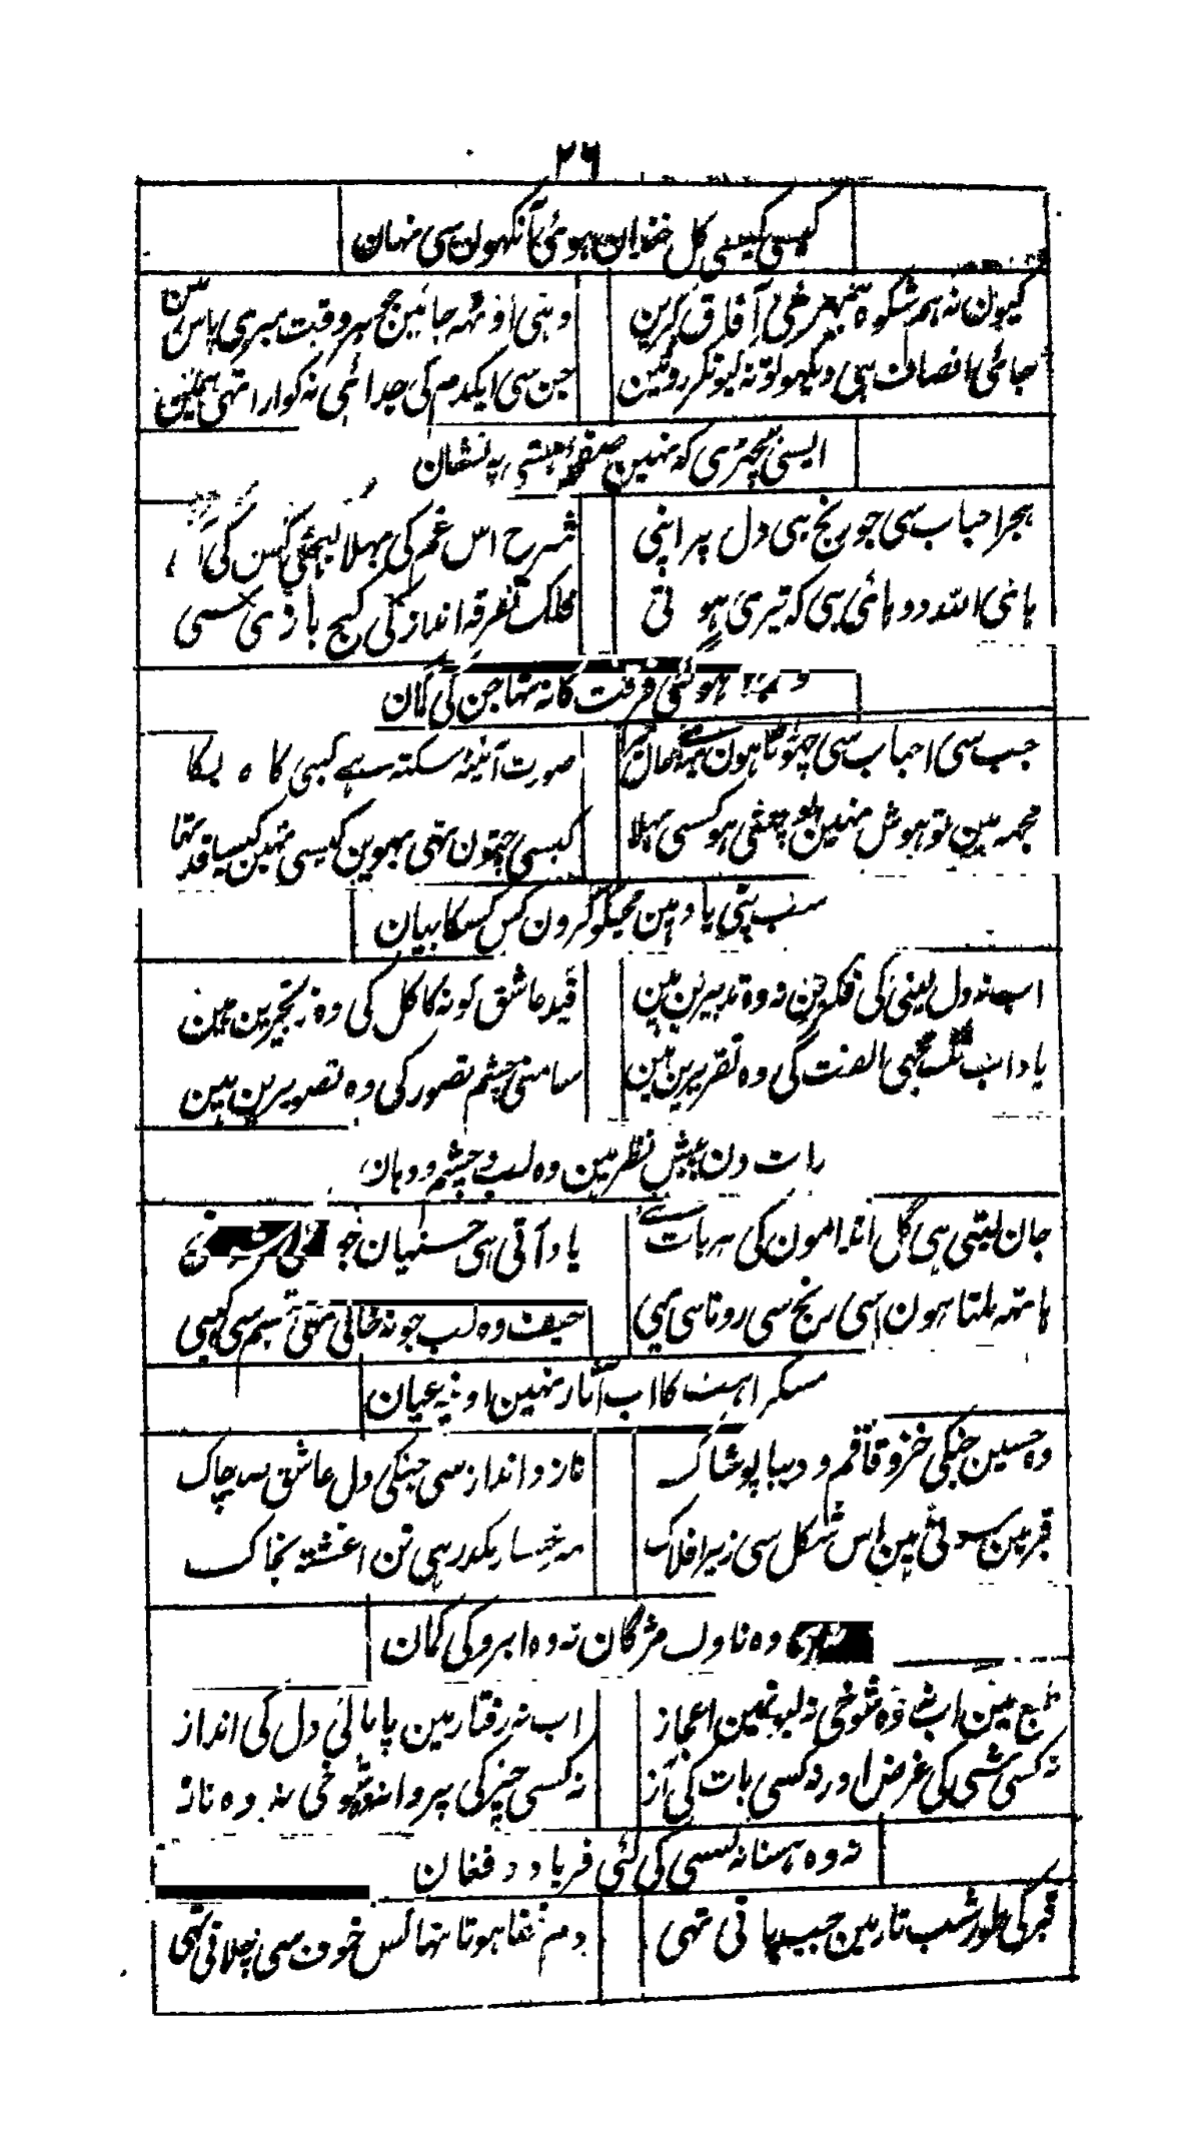 ۲۶
کیسی کیسی گل خندان ہوئی آنکھون سی نہان
کیون نہ ہم شکوہ آفاق کرین
وہی اوٹھ جائین جو ہر وقت میری پاس
جائی انصاف ہی دیکھو تو نہ کیونکر روئین
جن سی ایکدم کی جدائی نہ گوارا تھی ہمین
ایسی بچھڑی کہ نہین صفحہ ہستی پہ نشان
ہجر احباب سی جو رنج ہی دل پر اپنی
شرح اس غم کی بہلا کیجئی کس کی
ہائی اللہ دوہائی ہی کہ تیری ہوتی
فلک تفرقہ انداز کی کج بازی سی
ہوگئی فرقت کا نہ تھا جن کی گمان
جب سی احباب سی چھوٹا ہون یہ حال
صورت آئینہ سکتہ ہے کبہی کا
مجھہ مین تو ہوش نہین پوچھتی ہو کسی بہلا
کیسی چتون تھی بھوین کیسی تہین کیسا قد تہا
سب پتی یاد ہین مجکو کرون کس کسکا بیان
اب نہ دل لینی کی فکرین نہ وہ تدبیرین ہین
قید عاشق کو نہ کاکل کی وہ زنجیرین ہین
یاد اب تک مجہی الفت کی وہ تقریرین ہین
سامنی چشم تصور کی وہ تصویرین ہین
رات دن پیش نظر ہین وہ لب و چشم و دہان
جان لیتی ہی گل اندامون کی ہر بات
یاد آتی ہی حسینان
ہاتھ ملتا ہون اسی رنج سی روتا سی ہی
حیف وہ لب جو نہ خالی تہی تبسم سی کبہی
مسکراہٹ کا اب آثار نہین اونپہ عیان
وہ حسین جنکی خز و قاقم و دیبا پوشاک
ناز و انداز سی جنکی دل عاشق صد چاک
قبر مین سوئی ہین اس شکل سی زیر افلاک
رہی تن اغشتہ بخاک
وہ ناوک مژگان نہ وہ ابرو کی کمان
مین اب وہ شوخی نہ لبونمین اعجاز
اب نہ رفتار مین پامالی دل کی انداز
نہ کسی شی کی غرض اور نہ کسی بات کی آز
نہ کسی چیز کی پروا نہ وہ شوخی نہ وہ ناز
نہ وہ ہنسنا نہ کسی کی لئی فریاد و فغان
قبر کی طور شب تار مین جب پاتی تہی
دم خفا ہوتا تہا کس خوف سی چلاتی تہی